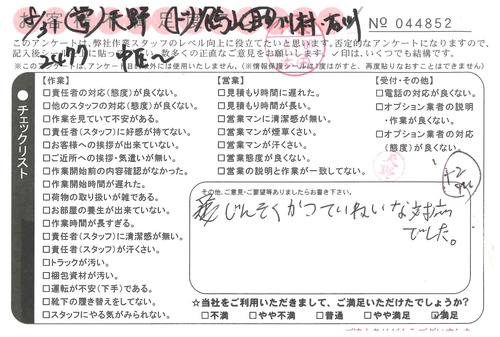 No 044852
このアンケートは、弊社作業スタッフのレベル向上に役立てたいと思います。否定的なアンケートになりますので、
※このアンケートは、アンケート目的以外には使用いたしません。(※情報保護シールは1度はがすと、再度貼りなおすことはできません)
チェックリスト
【作業】
□責任者の対応(態度)が良くない。
□他のスタッフの対応(態度)が良くない。
□作業を見ていて不安がある。
□責任者(スタッフ)に好感が持てない。
□お客様への挨拶が出来ていない。
□ご近所への挨拶・気遣いが無い。
□作業開始前の内容確認がなかった。
□作業開始時間が遅れた。
□荷物の取り扱いが雑である。
□お部屋の養生が出来ていない。
□作業時間が長すぎる。
□責任者(スタッフ)に清潔感が無い。
□責任者(スタッフ)が汗くさい。
□トラックが汚い。
□梱包資材が汚い。
□運転が不安(下手)である。
□靴下の履き替えをしてない。
□スタッフにやる気がみられない。
【営業】
□見積もり時間に遅れた。
□見積もり時間が長い。
□営業マンに清潔感が無い。
□営業マンが煙草くさい。
□営業マンが汗くさい。
□営業態度が良くない。
□営業の説明と作業が一致してない。
【受付・その他】
□電話の対応が良くない。
□オプション業者の説明
・作業が良くない。
□オプション業者の対応
(態度)が良くない。
その他、ご意見・ご要望等ありましたらお書き下さい。
じんそくかつていねいな対応
でした。
☆当社をご利用いただきまして、ご満足いただけたでしょうか?
□不満 □やや不満 □普通 □やや満足 ☑満足